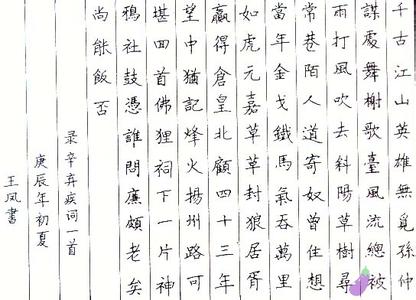 千古江山英雄無覓孫仲
謀處舞榭歌臺風流總被
雨打風吹去斜陽草樹尋
常巷陌人道寄奴曾住想
當年金戈鐵馬氣吞萬里
如虎元嘉草草封狼居胥
贏得倉皇北顧四十三年
望中猶記烽火揚州路可
堪回首佛狸祠下一片神
鴉社鼓憑誰問廉頗老矣
尚能飯否
录辛弃疾词一首
庚辰年初夏
王凤書